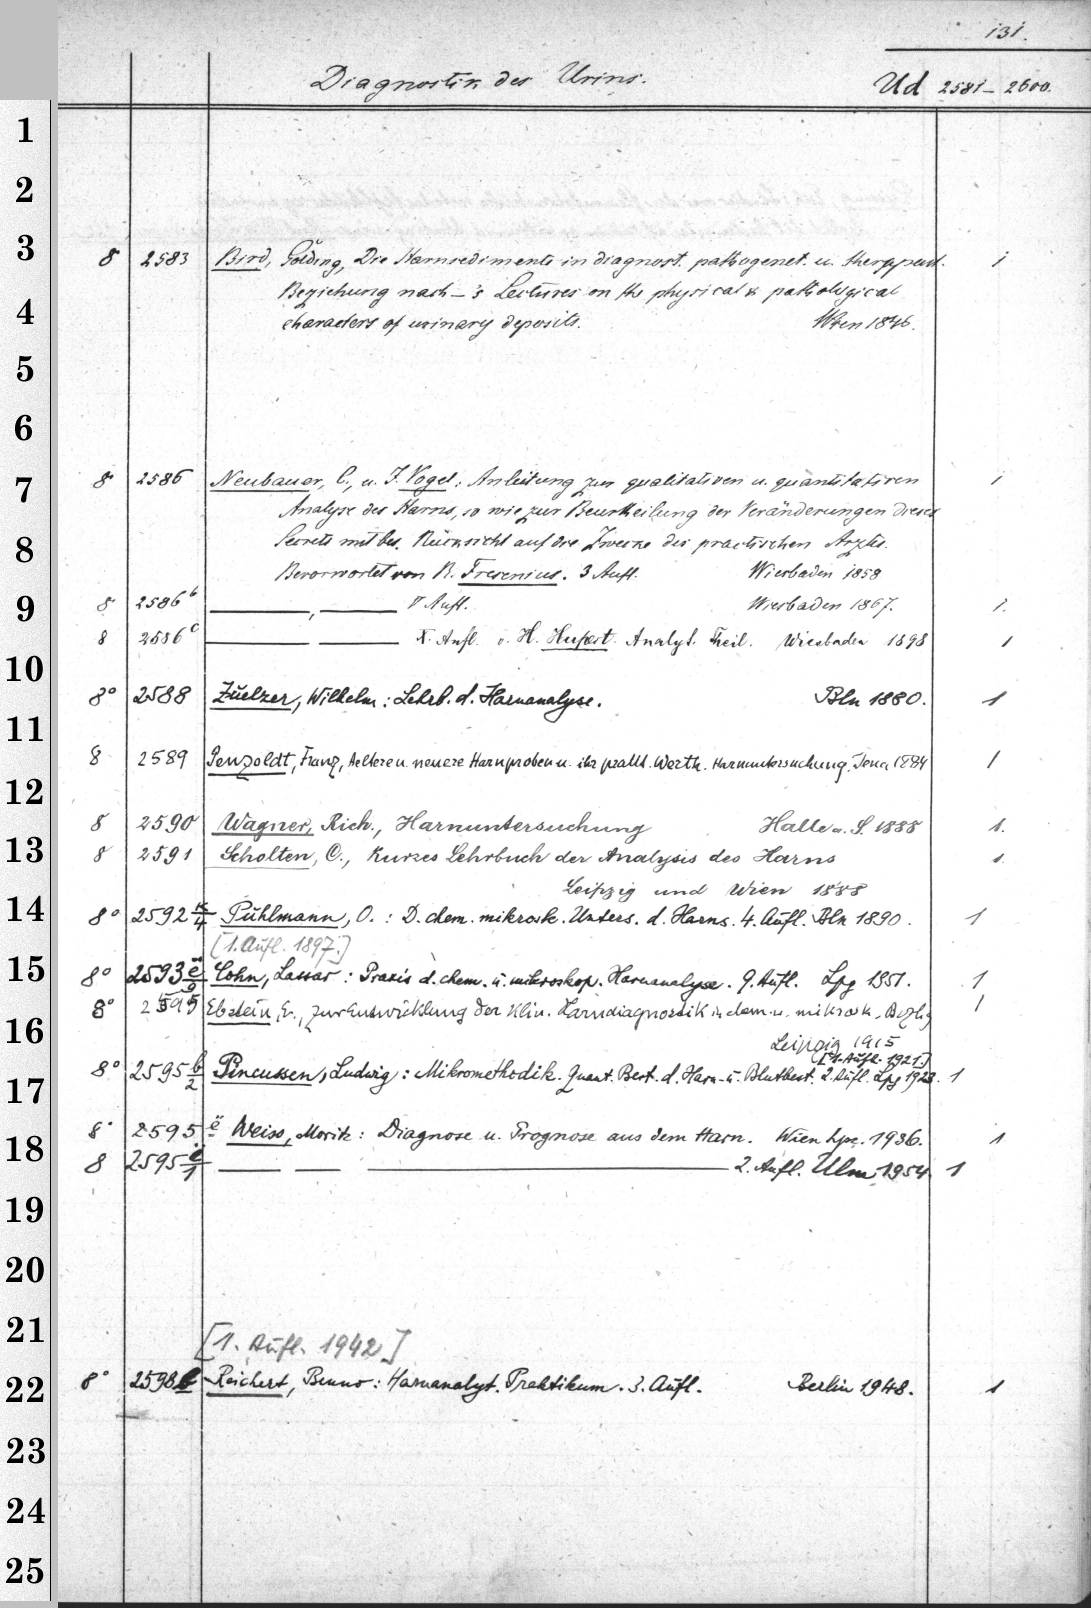 131.
Diagnostik des Urins. Ud 2581-2600.
1
2
3
4
5
6
7
8
9
10
11
12
13
14
15
16
17
18
19
20
21
22
23
24
25
8 2583 Bird, Golding, Die Harnsedimente in diagnost. pathogenet. u. therapeut. 1
Beziehung nach – 's Lectures on the physical & pathological
characters of urinary deposits. Wien 1846.
8 2586 Neubauer, C., u. J. Vogel, Anleitung zur qualitativen u. quantitativen 1
Analyse des Harns, so wie zur Beurtheilung der Veränderungen dieses
Secrets mit bes. Rücksicht auf die Zwecke des practischen Arztes.
Bevorwortet von R. Fresenius. 3 Aufl. Wiesbaden 1858
8 2586b ——, —— V Aufl. Wiesbaden 1867. 1.
8 2586c —— —— X. Aufl. v. H. Huppert. Analyt. Theil. Wiesbaden 1898 1
8° 2588 Zuelzer, Wilhelm: Lehrb. d. Harnanalyse. Bln 1880. 1
8 2589 Penzoldt, Franz, Aeltere u. neuere Harnproben u. ihr prakt. Werth. Harnuntersuchung. Jena 1884 1
8 2590 Wagner, Rich., Harnuntersuchung Halle a. S. 1888 1.
8 2591 Scholten, C., Kurzes Lehrbuch der Analysis des Harns 1.
Leipzig und Wien 1888
8° 2592 K/4 Pühlmann, O.: D. chem. mikrosk. Unters. d. Harns. 4. Aufl. Bln 1890. 1
[1. Aufl. 1897.]
8° 2593 ë/9 Cohn, Lassar: Praxis d. chem. u. mikroskop. Harnanalyse. 9. Aufl. Lpg 1951. 1
8° 2595 Ebstein, E., zur Entwicklung der klin. Harndiagnostik in chem. u. mikrosk. Bezhg 1
Leipzig 1915
[1. Aufl. 1921]
8° 2595 b/2 Pincussen, Ludwig: Mikromethodik. Quant. Best. d. Harn- u. Blutbest. 2. Aufl. Lpg 1923. 1
8° 2595 ë Weiss, Moritz: Diagnose u. Prognose aus dem Harn. Wien Lpz. 1936. 1
8 2595 ë/1 —— —— —— 2. Aufl. Ulm 1954. 1
[1. Aufl. 1942]
8° 2598 b Reichert, Benno: Harnanalyt. Praktikum. 3. Aufl. Berlin 1948. 1